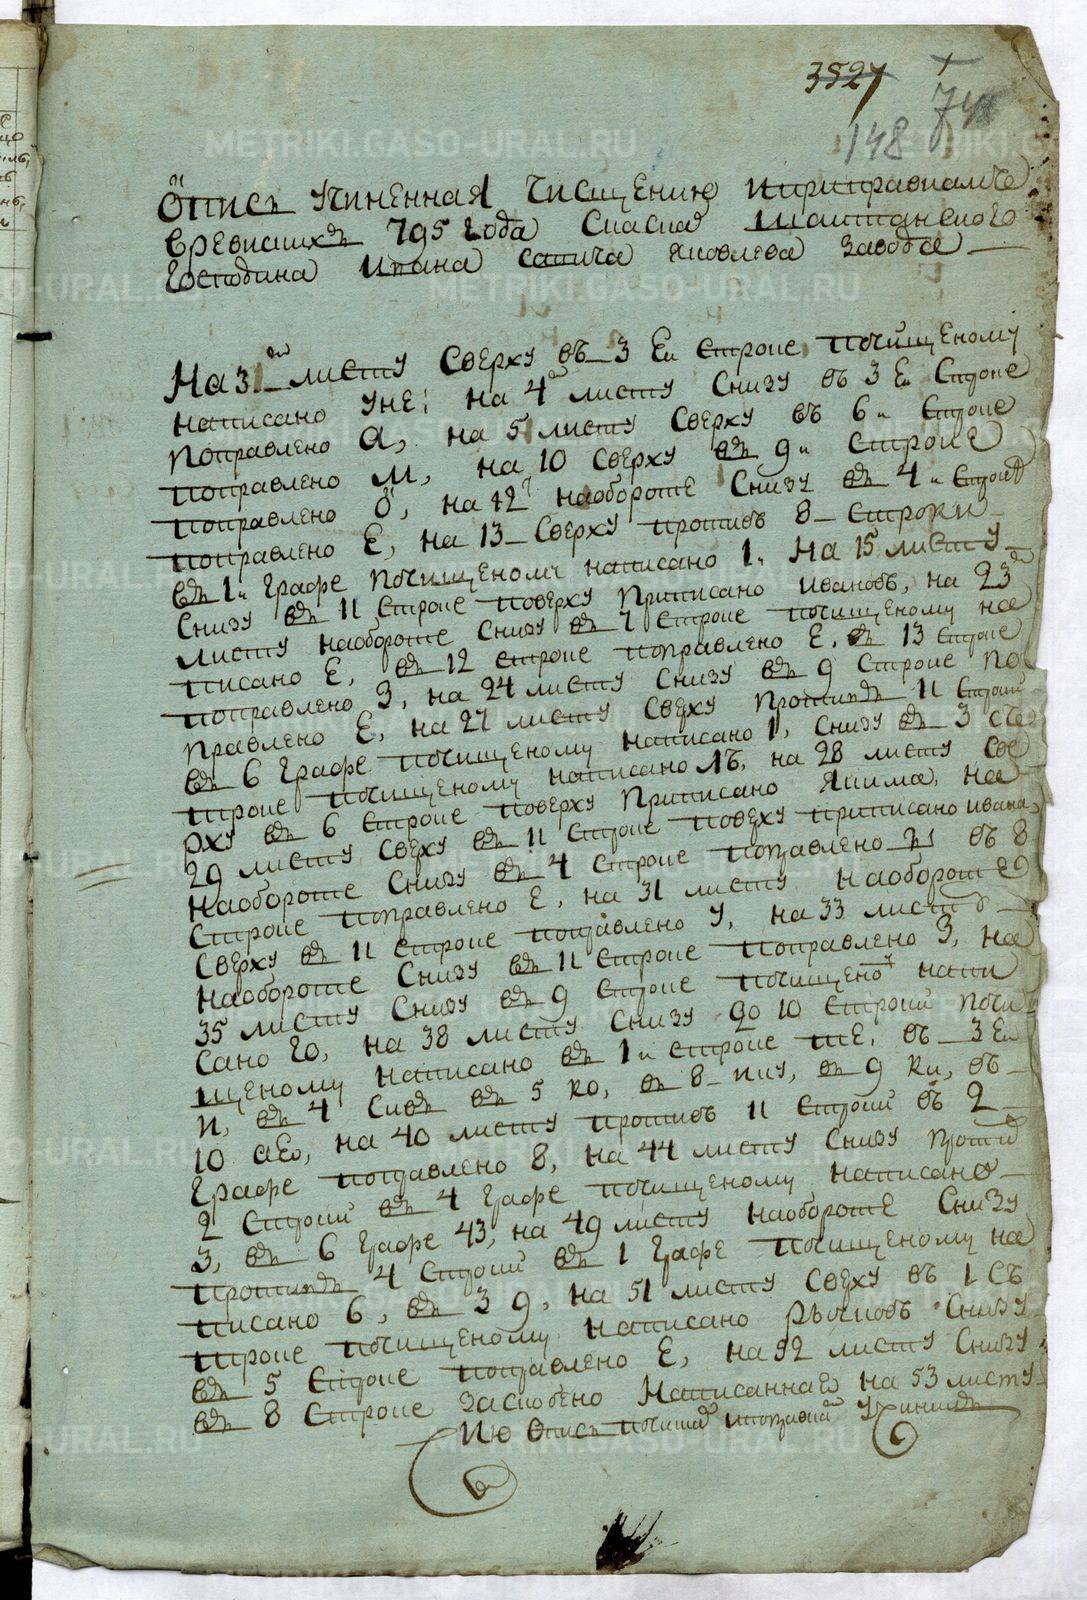 3527
148
Опись учиненная чисщению и приправкамъ
в ревиских 795 года Спаска Шайтанского
Господина Ивана Савича Яковлева завода
На 3 м листу сверху въ 3 ей строке почищеному
написано уне; на 4 листу снизу въ 3 ей строке
поправлено а, на 5 листу сверху въ 6 и строке
поправлено м, на 10 сверху въ 9 и строке
поправлено о, на 12 наобороте снизу въ 4 и строке
поправлено е, на 13 сверху противъ 8 строки
въ 1 и графе почищеному написано 1 и на 15 листу
снизу въ 11 строке поверху приписано ивановъ, на 23
листу наобороте снизу въ 7 строке почищеному на
писано е, въ 12 строке поправлено е, въ 13 строке
поправлено з, на 24 листу снизу въ 9 строке по
правлено е, на 27 листу сверху противъ 11 строки
въ 6 графе почищеному написано 1, снизу въ 3 съ
троке почищеному написано лъ, на 28 листу све
рху въ 6 строке поверху приписано якима, на
29 листу сверху въ 11 строке поверху приписано ивана,
наобороте снизу въ 4 строке поправлено въ 8
строке поправлено е, на 31 листу наобороте
сверху въ 11 строке поправлено у, на 33 листу
наобороте снизу въ 11 строке поправлено з, на
35 листу снизу въ 9 строке почищеному напи
сано го, на 38 листу снизу до 10 строки почи
щеному написано въ 1 и строке те, въ 3 ей
и, въ 4 въ 5 ко, въ 8 въ 9 ки, въ
10 аго, на 40 листу противъ 11 строки въ 2
графе поправлено 8, на 44 листу снизу против
2 строки въ 4 графе почищеному написано
3, въ 6 графе 43, на 49 листу наобороте снизу
противъ 4 строки въ 1 графе почищеному на
писано 6, въ 3 9, на 51 листу сверху въ 1 съ
троке почищеному написано рычковъ снизу
въ 5 строке поправлено е, на 52 листу снизу
въ 8 строке заскоблено написанная на 53 листу
Ию опись
METRIKI.GASO-URAL.RU